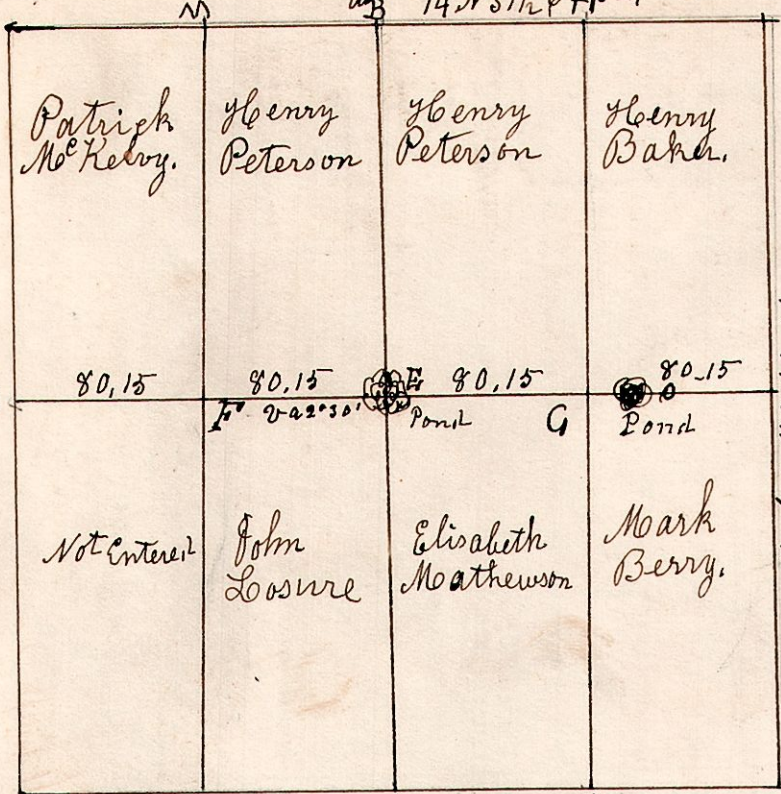 N B
Patrick
McKelvy.
Henry
Peterson
Henry
Peterson
Henry
Baker.
80,15
80,15
E
80,15
80-15
F Va 2°30'
Pond
G
Pond
Not Entered
John
Losure
Elisabeth
Mathewson
Mark
Berry.